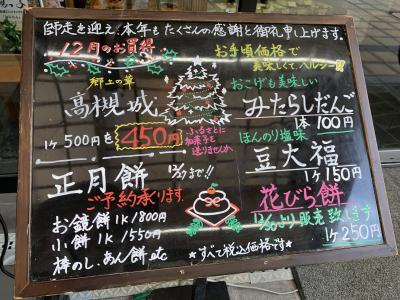 師走を迎え、本年もたくさんの感謝と御礼申し上げます。
12月のお買得
郷土の華
高槻城
1ケ500円を450円
ふるさとに和菓子を送りませんか
正月餅
12/27まで!!
ご予約承ります
お鏡餅 1K1800円
小餅 1K1550円
棒のし、あん餅 etc
お手頃価格で
美味しくて、ヘルシー
おこげも美味しい
みたらしだんご
1本100円
ほんのり塩味
豆大福
1ケ150円
花びら餅
12/30より販売致します
1ケ250円
*すべて税込価格です*